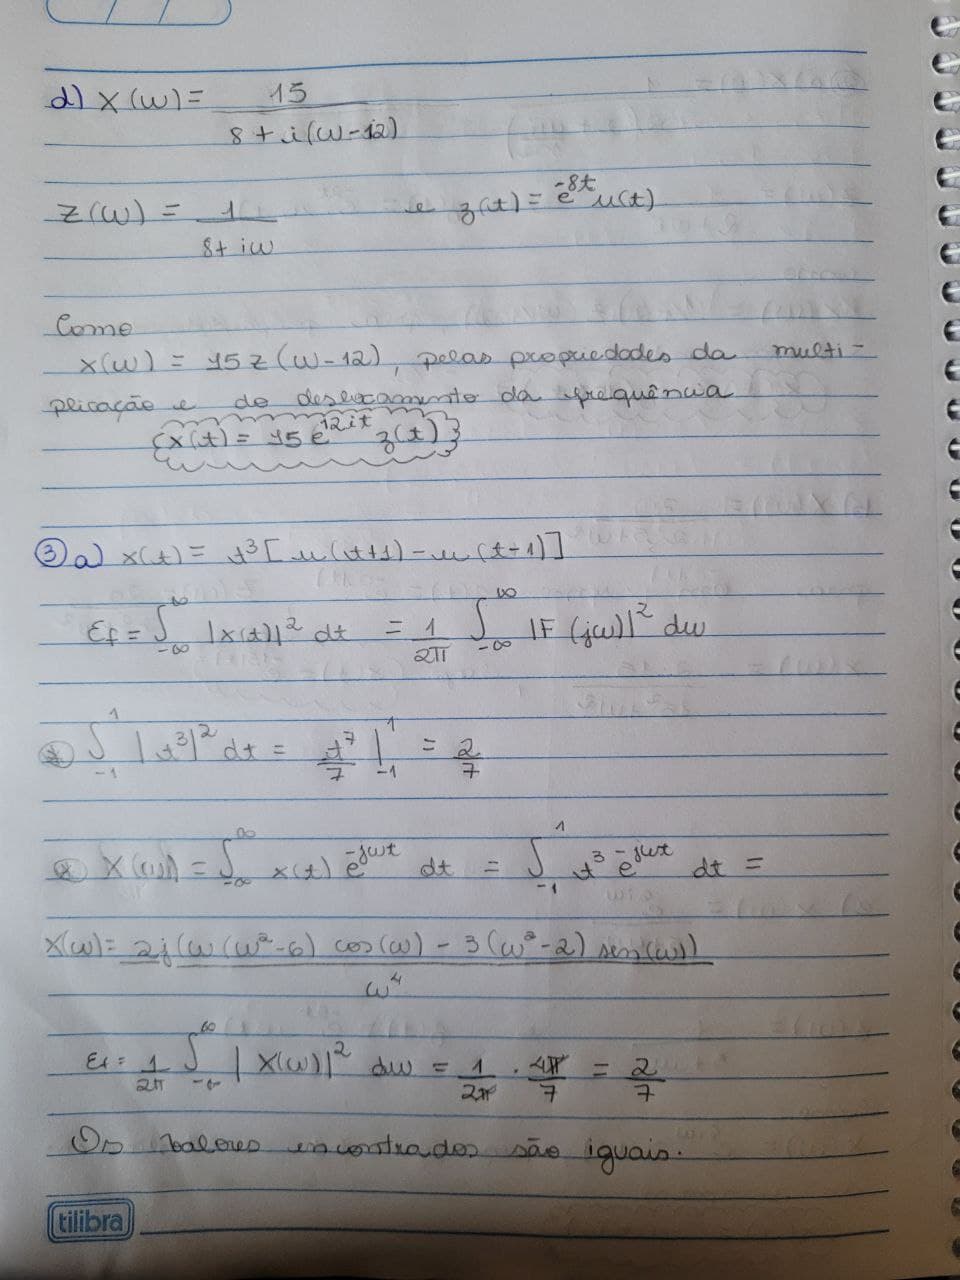 d) X(w) = 15 / 8 + i(w-12)
Z(w) = 1 / 8 + iw e z(t) = e^-8t u(t)
Como
x(w) = 15 z (w-12), pelas propriedades da multi-
plicação e do deslocamento da frequência
{x(t) = 15 e^12it z(t)}
③ a) x(t) = t³ [u(t+1) - u(t-1)]
Ef = ∫_-∞^∞ |x(t)|² dt = 1/2π ∫_-∞^∞ |F(jw)|² dw
∫_-1^1 |t³|² dt = t⁷/7 |_-1^1 = 2/7
X(w) = ∫_-∞^∞ x(t) e^-jwt dt = ∫_-1^1 t³ e^-jwt dt =
X(w) = 2j(w(w²-6) cos(w) - 3(w²-2) sen(w)) / w⁴
Ef = 1/2π ∫_-∞^∞ |X(w)|² dw = 1/2π · 4π/7 = 2/7
Os valores encontrados são iguais.
tilibra